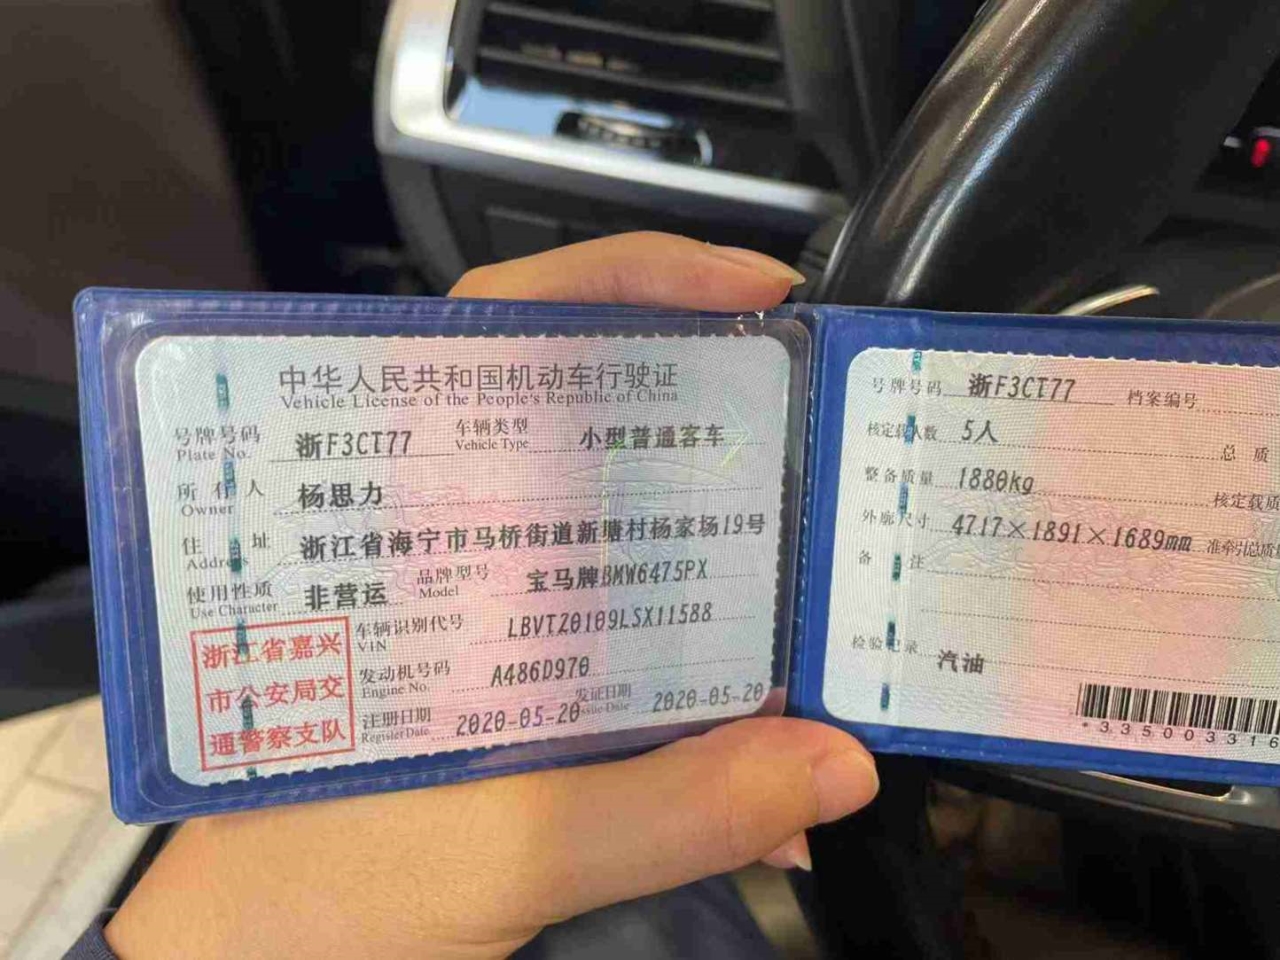 中华人民共和国机动车行驶证
Vehicle License of the People's Republic of China
号牌号码 浙F3CT77 车辆类型 小型普通客车
Plate No. Vehicle Type
所有人 杨思力
Owner
住址 浙江省海宁市马桥街道新塘村杨家场19号
Address
使用性质 非营运 品牌型号 宝马牌BMW6475PX
Use Character Model
车辆识别代号 LBVTZ0109LSX11588
VIN
发动机号码 A486D970
Engine No.
注册日期 2020-05-20 发证日期 2020-05-20
Register Date Issue Date
浙江省嘉兴
市公安局交
通警察支队
号牌号码 浙F3CT77 档案编号
核定载人数 5人 总质
整备质量 1880kg 核定载质
外廓尺寸 4717×1891×1689mm 准牵引总质
备注
检验记录 汽油
*335003316